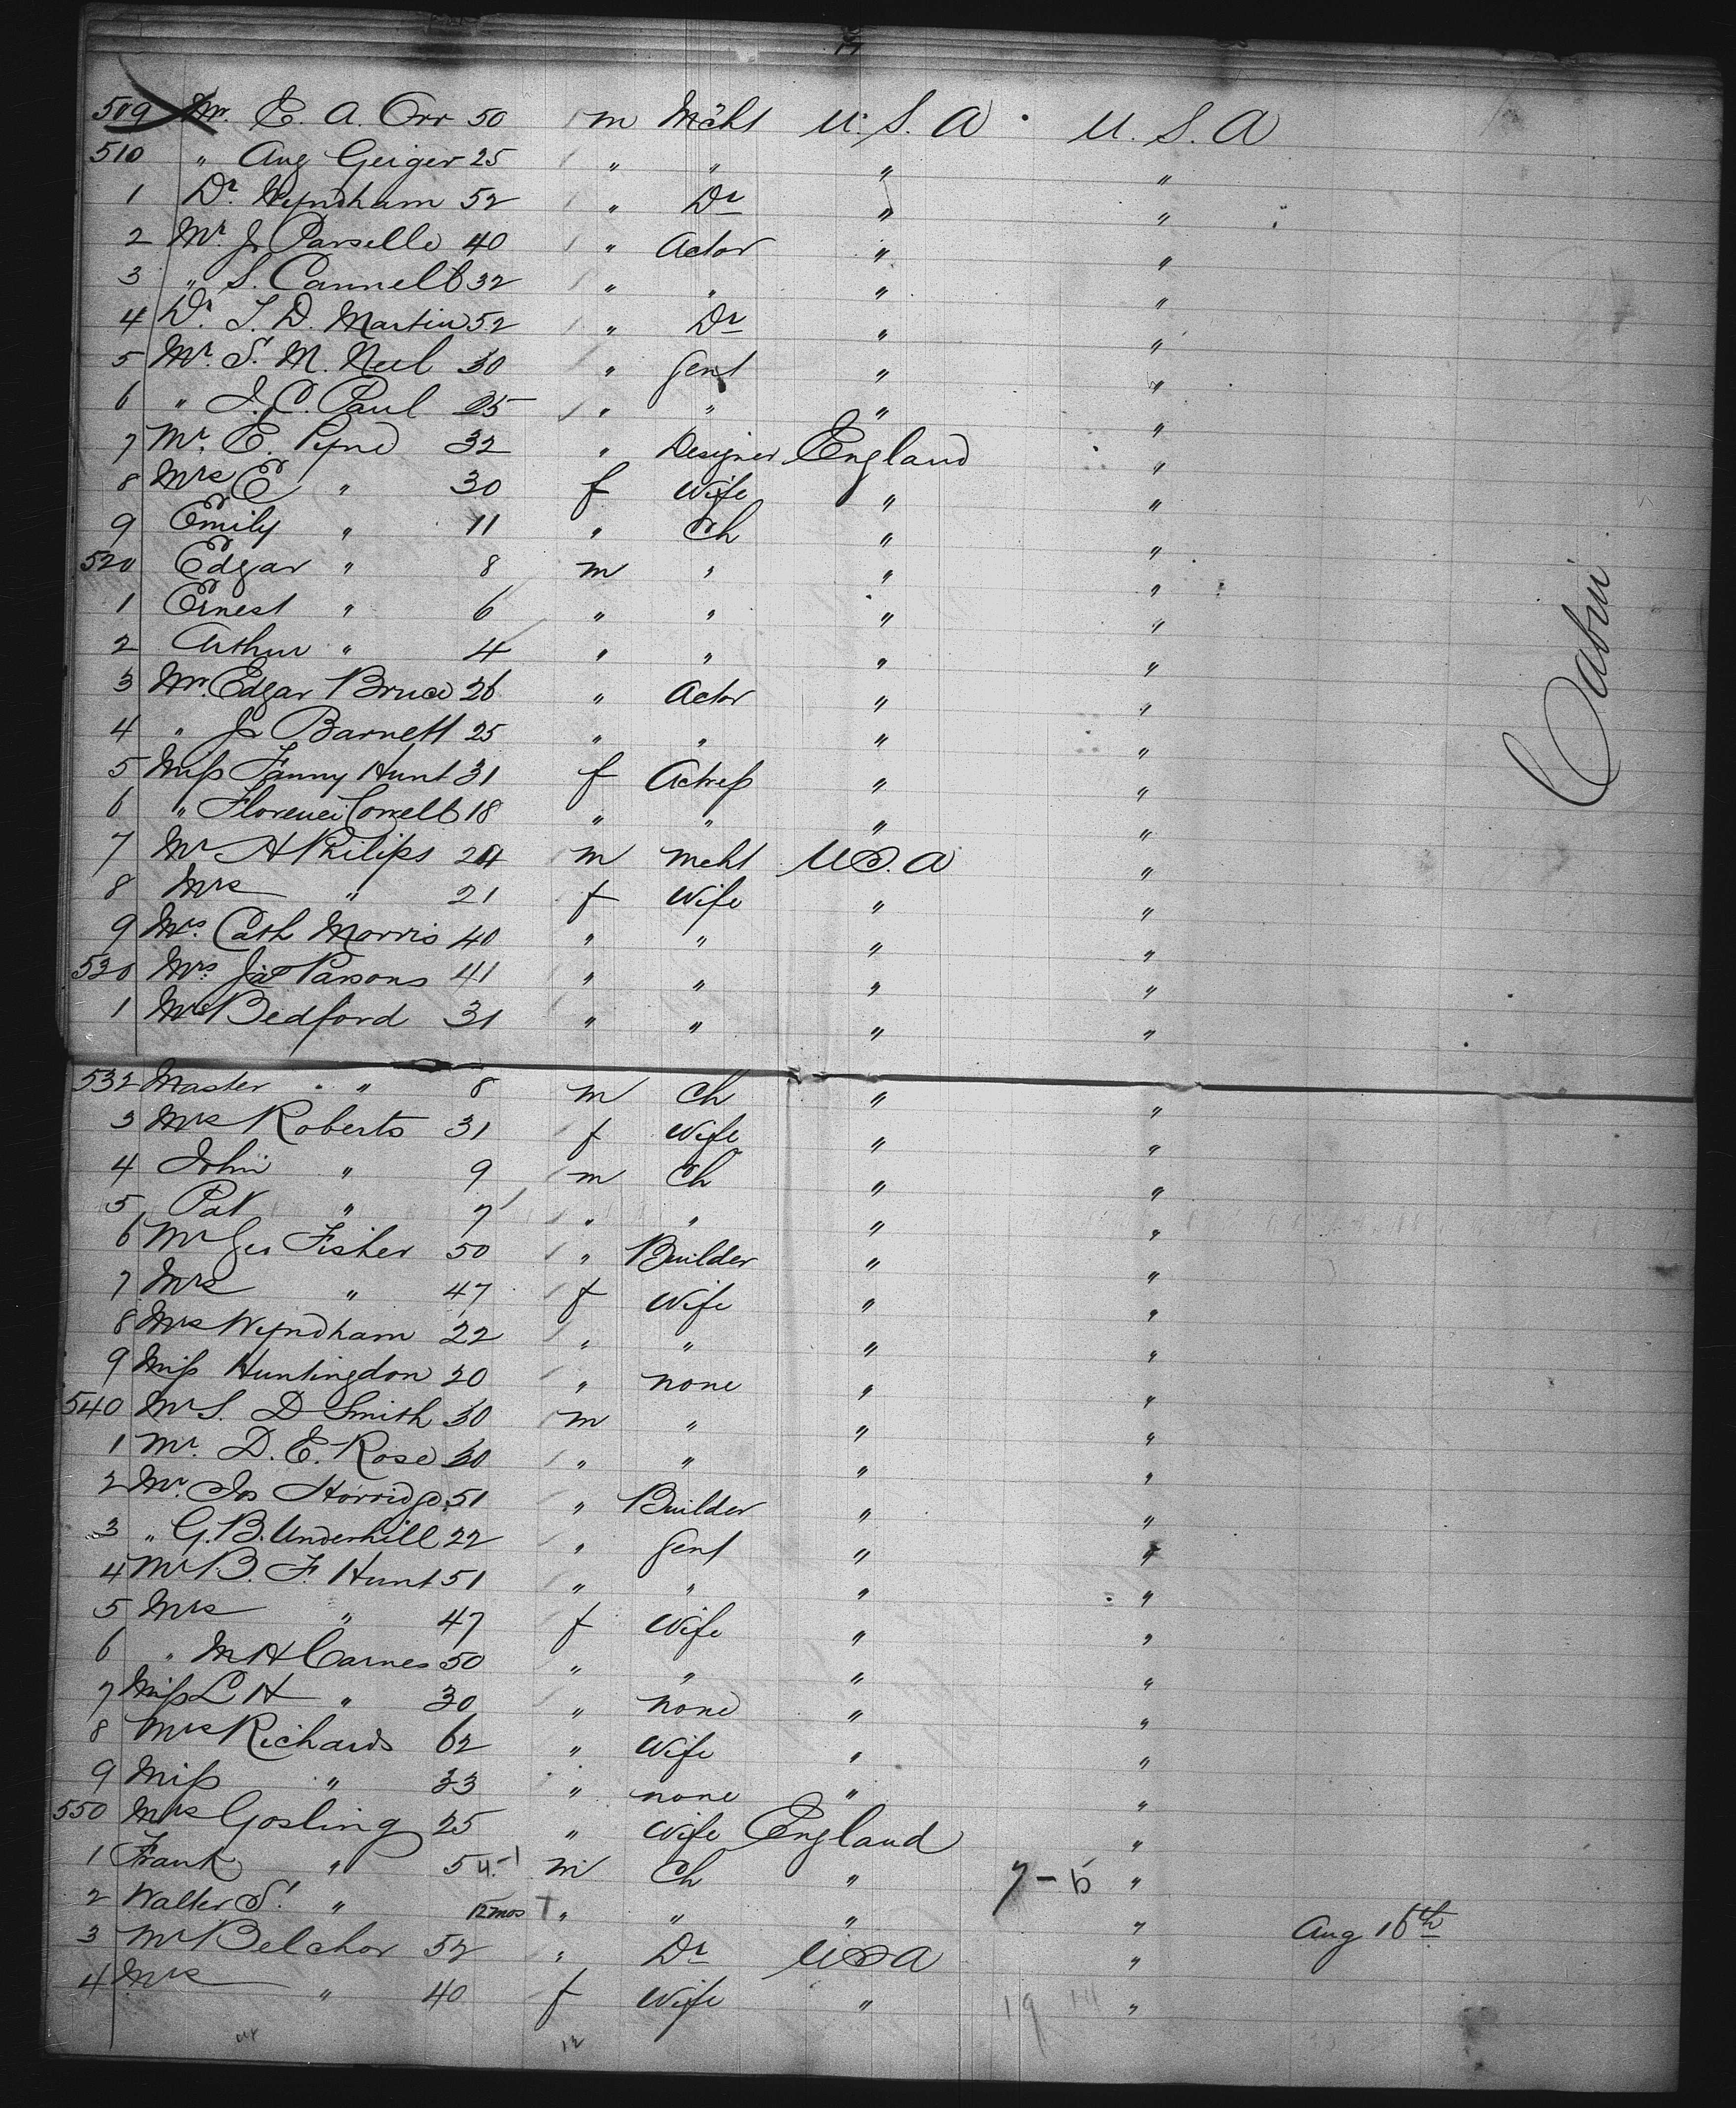 509 Mr. E. A. Orr 50 m Mcht U. S. A U. S. A
510 " Aug Geiger 25 " " " "
1 Dr. Wyndham 52 " Dr " "
2 Mr. J. Parselle 40 " Actor " "
3 " S. Cannell 32 " " " "
4 Dr. T. D. Martin 52 " Dr " "
5 Mr. S. M. Neel 30 " Gent " "
6 " J. C. Paul 25 " " " "
7 Mr. E. Pyne 32 " Designer England "
8 Mrs E " 30 f Wife " "
9 Emily " 11 " Ch " "
520 Edgar " 8 m " " "
1 Ernest " 6 " " " "
2 Arthur " 4 " " " "
3 Mr. Edgar Bruce 26 " Actor " "
4 " Js Barnett 25 " " " "
5 Miss Fanny Hunt 31 f Actress " "
6 " Florence Cowell 18 " " " "
7 Mr A Philips 24 m mcht U S. A "
8 Mrs " 21 f Wife " "
9 Mrs. Cath Morris 40 " " " "
530 Mrs. Parsons 41 " " " "
1 Mrs Bedford 31 " " " "
532 Master " 8 m Ch " "
3 Mrs Roberts 31 f Wife " "
4 John " 9 m Ch " "
5 Pat " 7 " " " "
6 Mr Geo Fisher 50 " Builder " "
7 Mrs " 47 f Wife " "
8 Mrs Wyndham 22 " " " "
9 Miss Huntingdon 20 " none " "
540 Mr S. D Smith 30 m " " "
1 Mr. D. E. Rose 30 " " " "
2 Mr. Jos Horridge 51 " Builder " "
3 " G. B. Underhill 22 " Gent " "
4 Mr B. F. Hunt 51 " " " "
5 Mrs " 47 f Wife " "
6 " M A Carnes 50 " " " "
7 Miss L H " 30 " none " "
8 Mrs Richards 62 " Wife " "
9 Miss " 33 " none " "
550 Mrs Gosling 25 " Wife England "
1 Frank " 5 m Ch " 7 - 5 "
2 Walter S. " 12 mos " " " " Aug 16th
3 Mr Belchor 52 " Dr U S A "
4 Mrs " 40 f Wife " "
Cabin